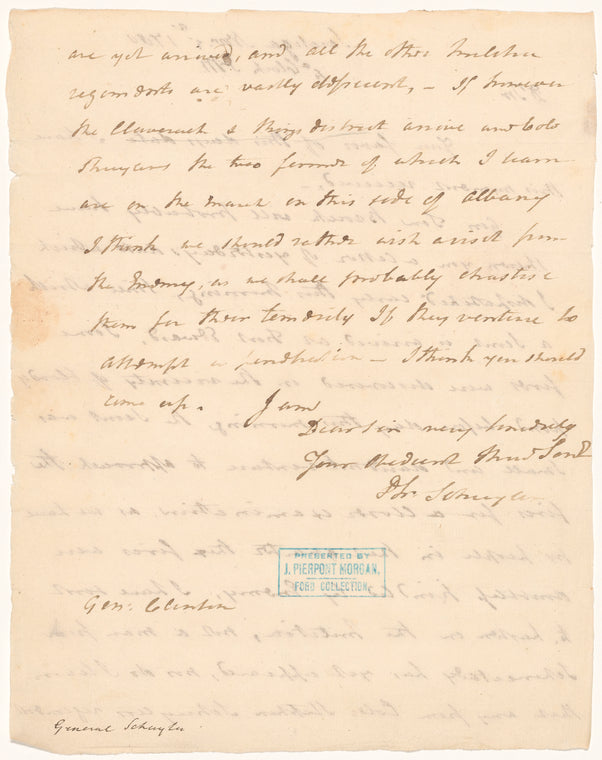 are yet arrived, and all the other militia
regiments are vastly deficient, – If however
the Claverack & Kings district arrive and Colo
the two former of which I learn
are on the march on this side of Albany
I think we should rather wish a visit from
the Enemy, as we shall probably chastise
them for their temerity If they venture to
attempt a – I think you should
come up. I am
Dear Sir very sincerely
Your Obedient Hume Servt
Ph: Schuyler
PRESENTED BY
J. PIERPONT MORGAN.
FORD COLLECTION.
Gen: Clinton
General Schuyler